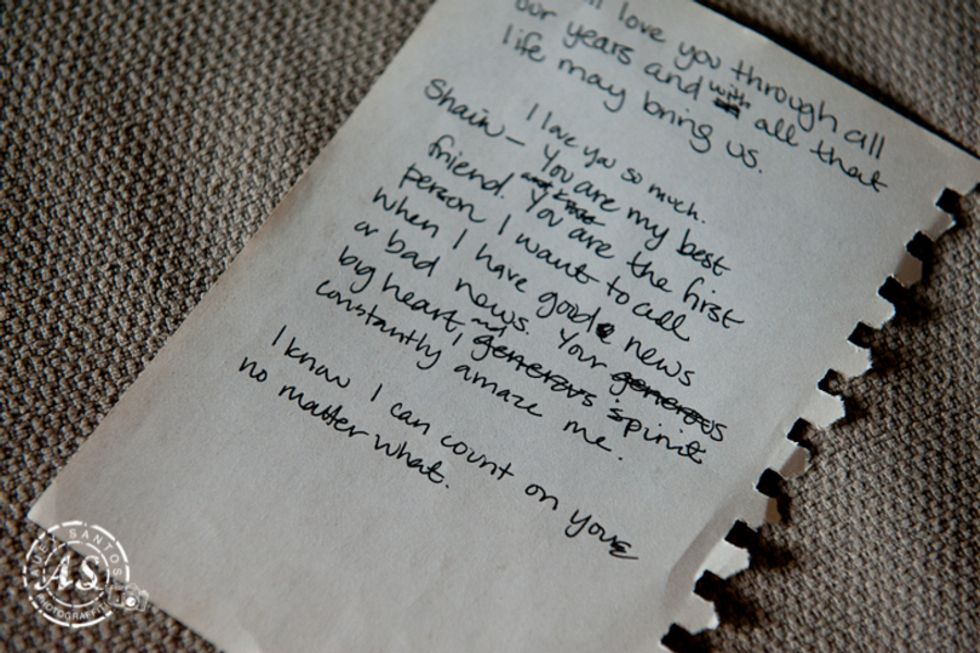 ll love you through all
our years and with all that
life may bring us.
I love you so much.
Shaun – You are my best
friend. You are the first
person I want to call
when I have good news
or bad news. Your generous
big heart, and generous spirit
constantly amaze me.
I know I can count on you
no matter what.
SANTOS
AS